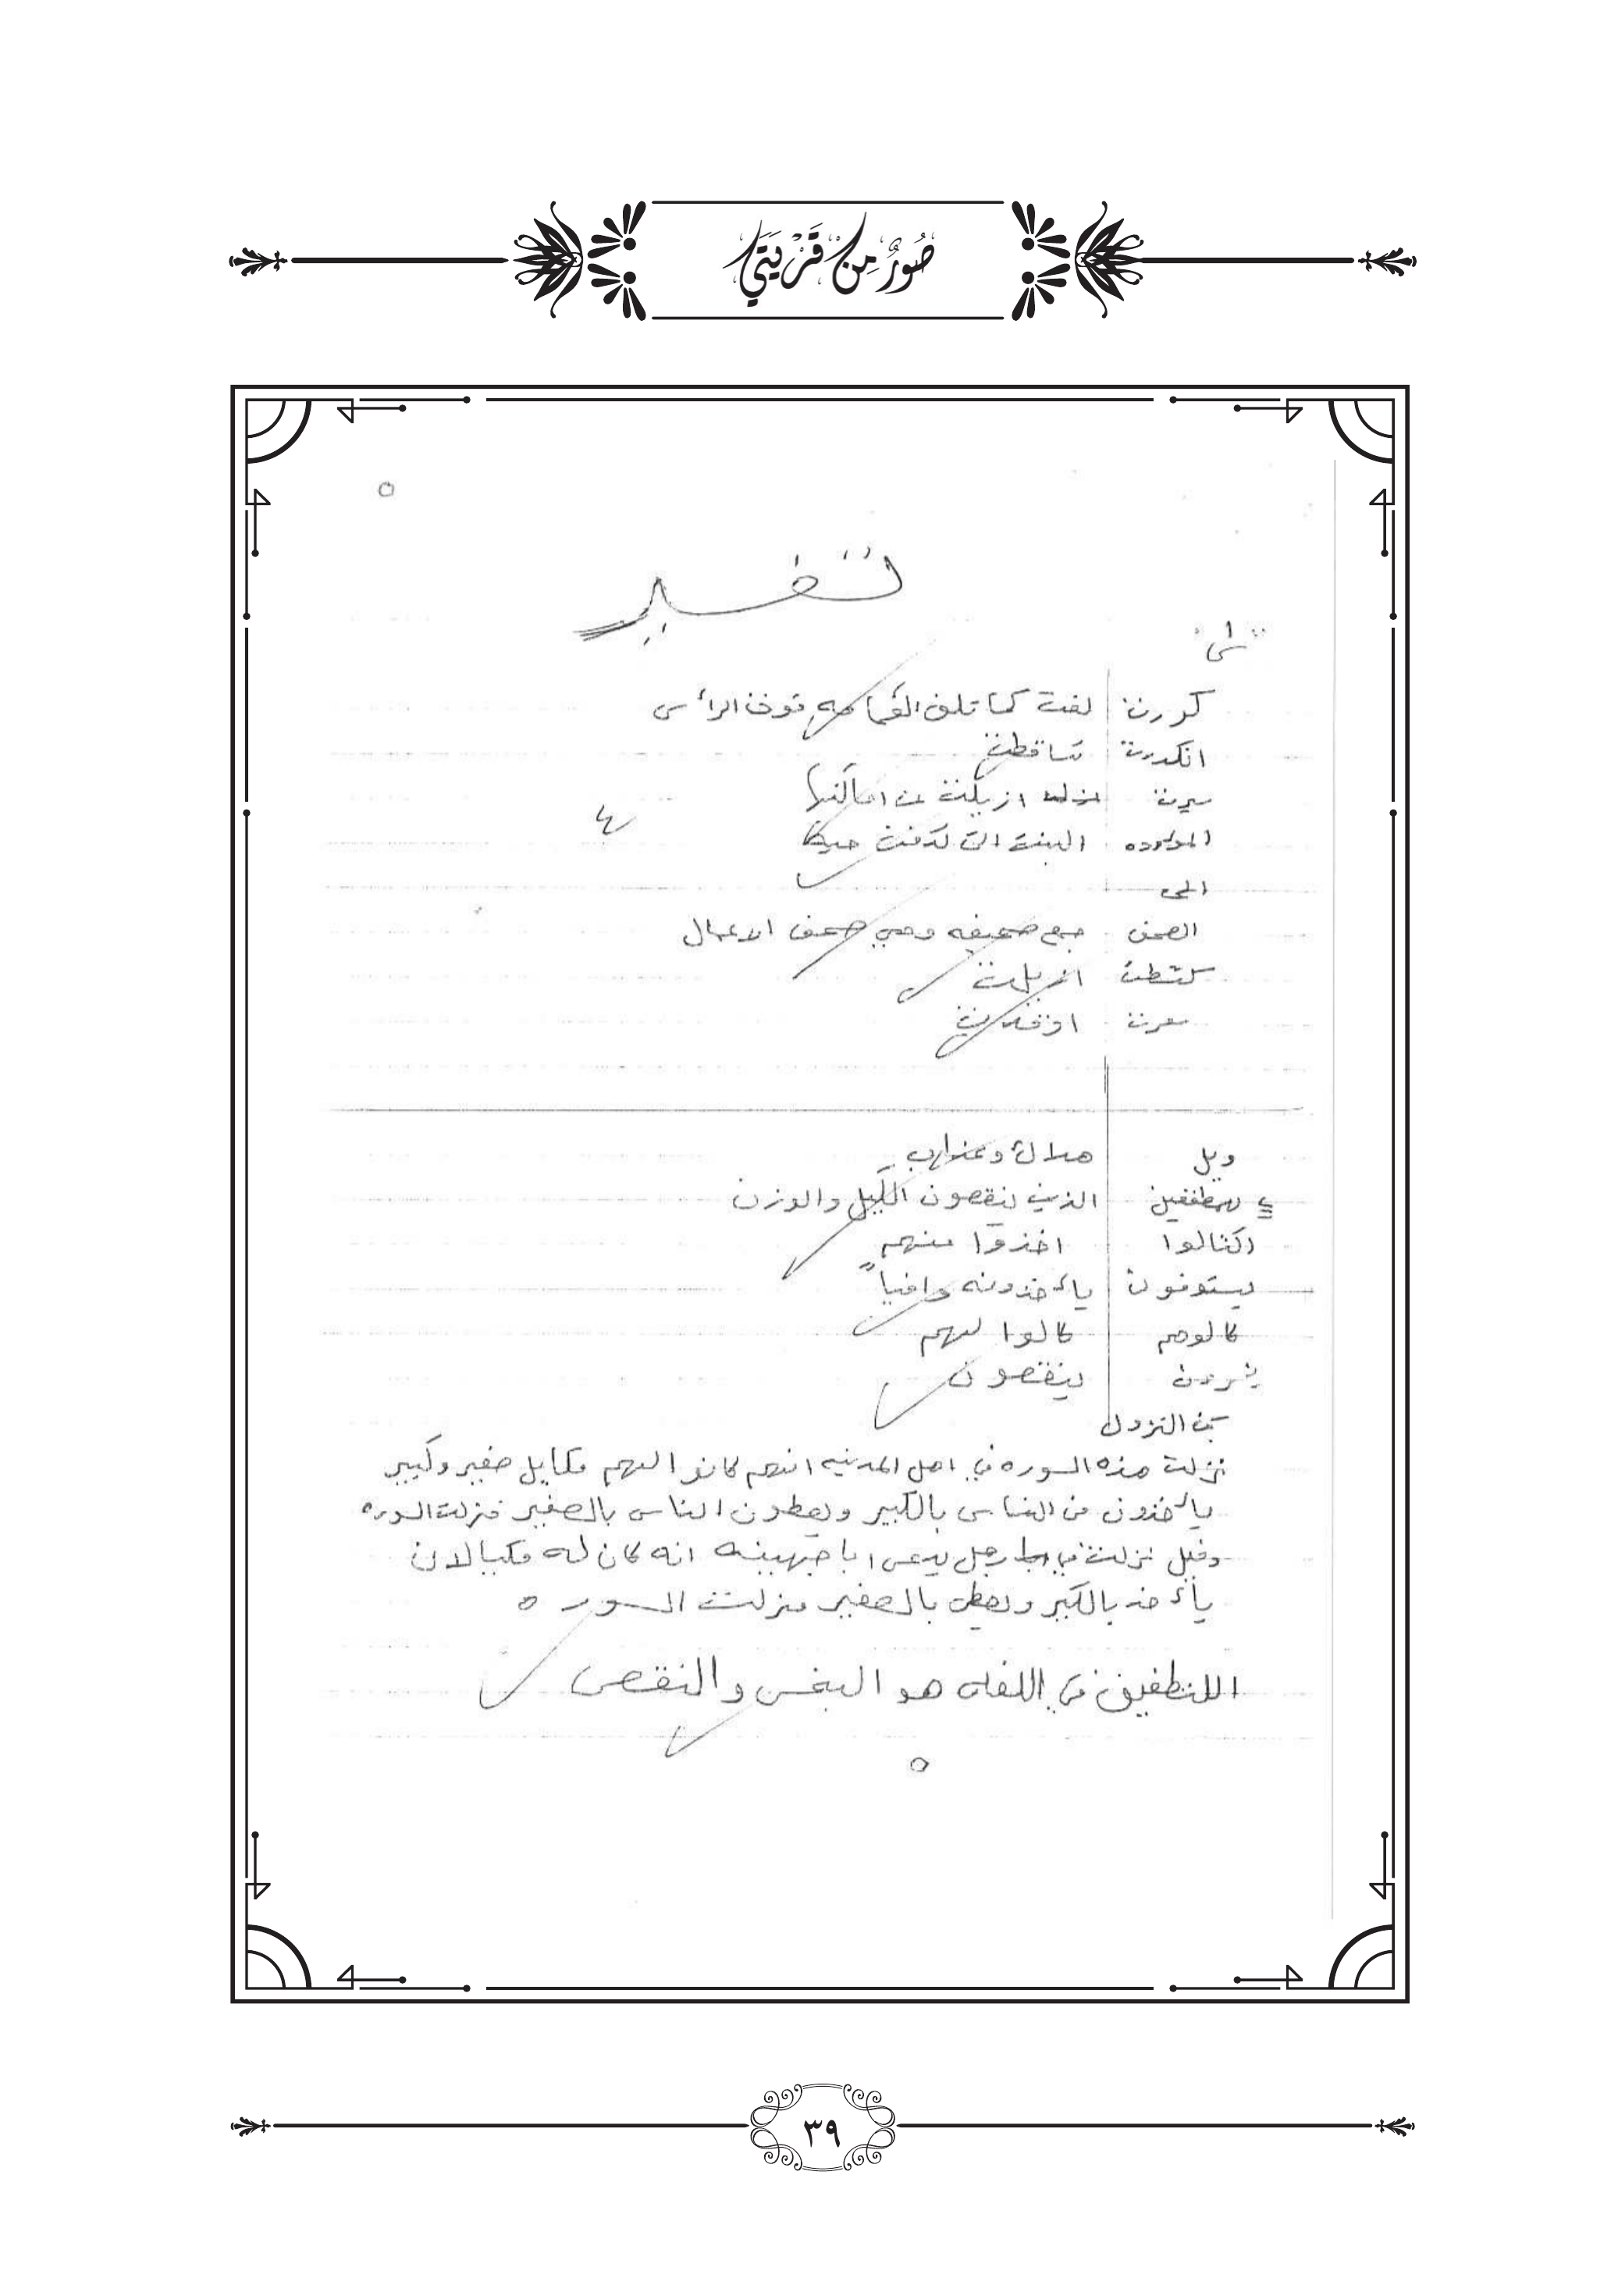 صُوَرٌ مِنْ قَرْيَتِي
٥
تفسير
كورت لفت كما تلف العمامه فوق الرأس
انكدرت تساقطت
سيرت ازيلت عن اماكنها
الموءوده البنت التي تدفن حيه
٤
الحي
الصحف جمع صحيفه وهي صحف الاعمال
كشطت ازيلت
سعرت اوقدت
ويل هلاك وعذاب
للمطففين الذين ينقصون الكيل والوزن
اكتالوا اخذوا منهم
يستوفون يأخذونه وافياً
كالوهم كالوا لهم
يخسرون ينقصون
سبب النزول
نزلت هذه السوره في اهل المدينه انهم كانوا لهم مكايل صغير وكبير
يأخذون من الناس بالكبير ويعطون الناس بالصغير فنزلت السوره
وقيل نزلت في رجل يدعى ابا جهينه انه كان له مكيالان
يأخذ بالكبير ويعطي بالصغير فنزلت السوره
التطفيف في اللغه هو البخس والنقص
٥
٣٩